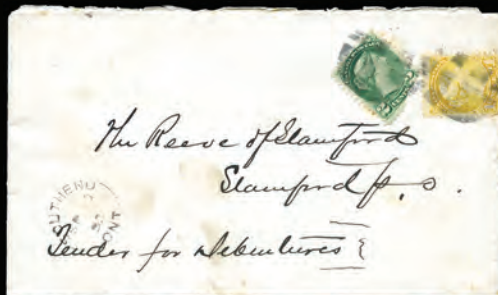 The Reeve of Stamford
Stamford P.O.
Tender for Debentures
SOUTHEND
ONT